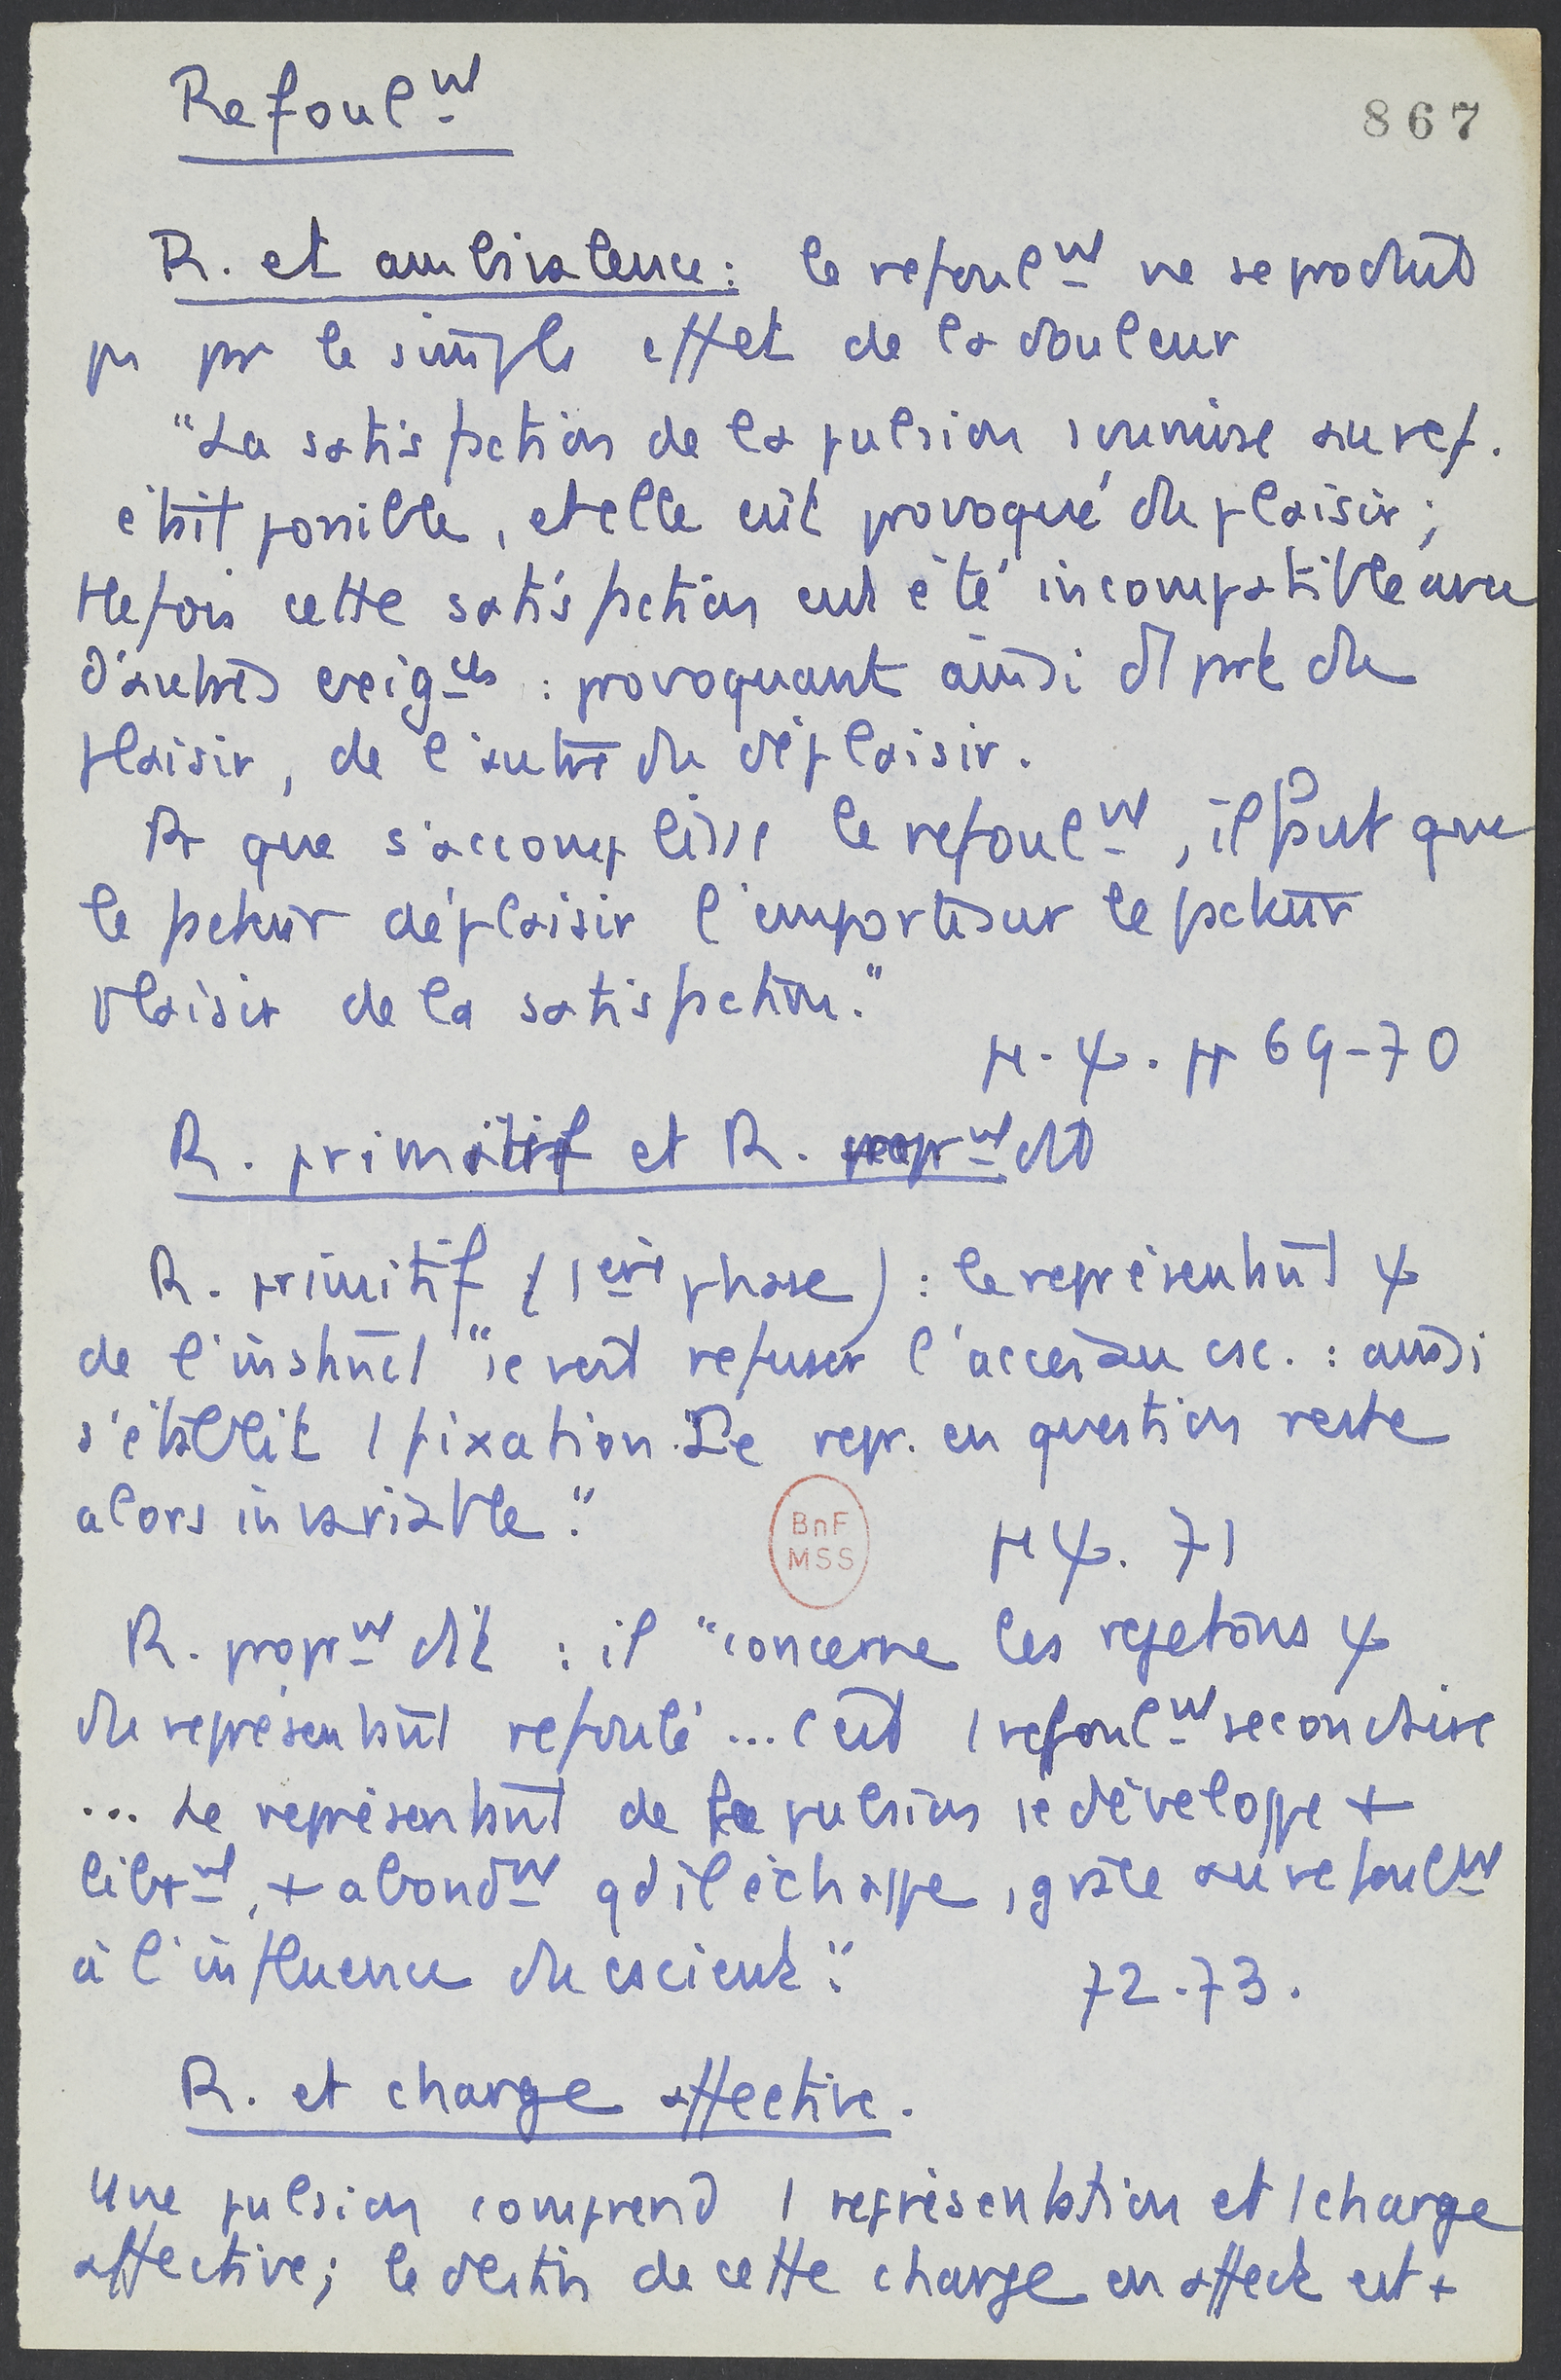 Refoul^nt
867
R. et ambivalence : le refoul^nt ne se produit
pas par le simple effet de la douleur
"La satisfaction de la pulsion soumise au ref.
était possible, et elle eût provoqué du plaisir ;
ttefois cette satisfaction eut été incompatible avec
d'autres exig^ces : provoquant ainsi d'1 part du
plaisir, de l'autre du déplaisir.
Pr que s'accomplisse le refoul^nt, il faut que
le facteur déplaisir l'emporte sur le facteur
plaisir de la satisfaction."
M.ψ. pp 69-70
R. primitif et R. propr^nt dit
R. primitif (1ère phase) : le représentant ψ
de l'instinct "se voit refuser l'accès au csc. : ainsi
s'établit 1 fixation. Le repr. en question reste
alors invariable."
BnF
MSS
Mψ. 71
R. propr^nt dit : il "concerne les rejetons ψ
du représentant refoulé ... c'est 1 refoul^nt secondaire
... Le représentant de la pulsion se développe +
libr^nt, + abond^nt qd il échappe, grâce au refoul^nt
à l'influence du cscient."
72-73.
R. et charge affective.
Une pulsion comprend 1 représentation et 1 charge
affective ; le destin de cette charge en affect est +